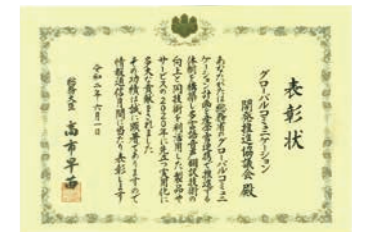 表彰状
グローバルコミュニケーション
開発推進協議会 殿
あなたがたは総務省がグローバルコミュニ
ケーション計画を産学官連携で推進する
体制を構築し多言語音声翻訳技術の
向上と同技術を利活用した製品や
サービスの2020年に先立つ実用化に
多大な貢献をされました
その功績は誠に顕著でありますので
情報通信月間に当たり表彰します
令和二年六月一日
総務大臣 高市早苗